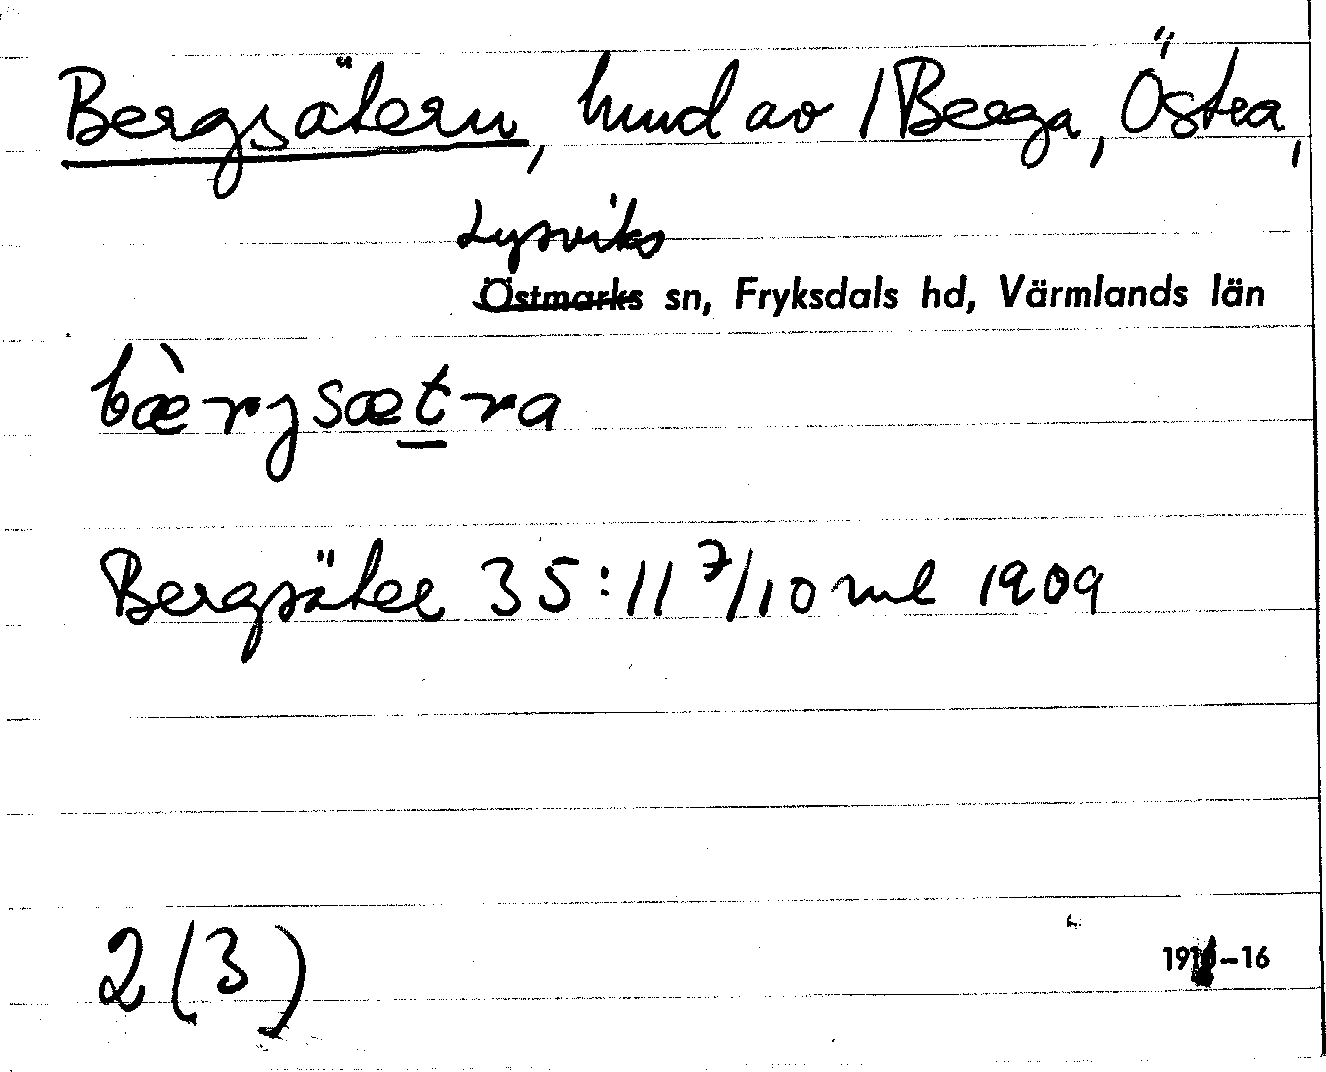 Bergsätern, hmd av / Berga, Östra,
Lysviks
Östmarks sn, Fryksdals hd, Värmlands län
bæ̀rgsæt̲ra
Bergsäter 35:11 7/10 ml 1909
2 (3)
-16